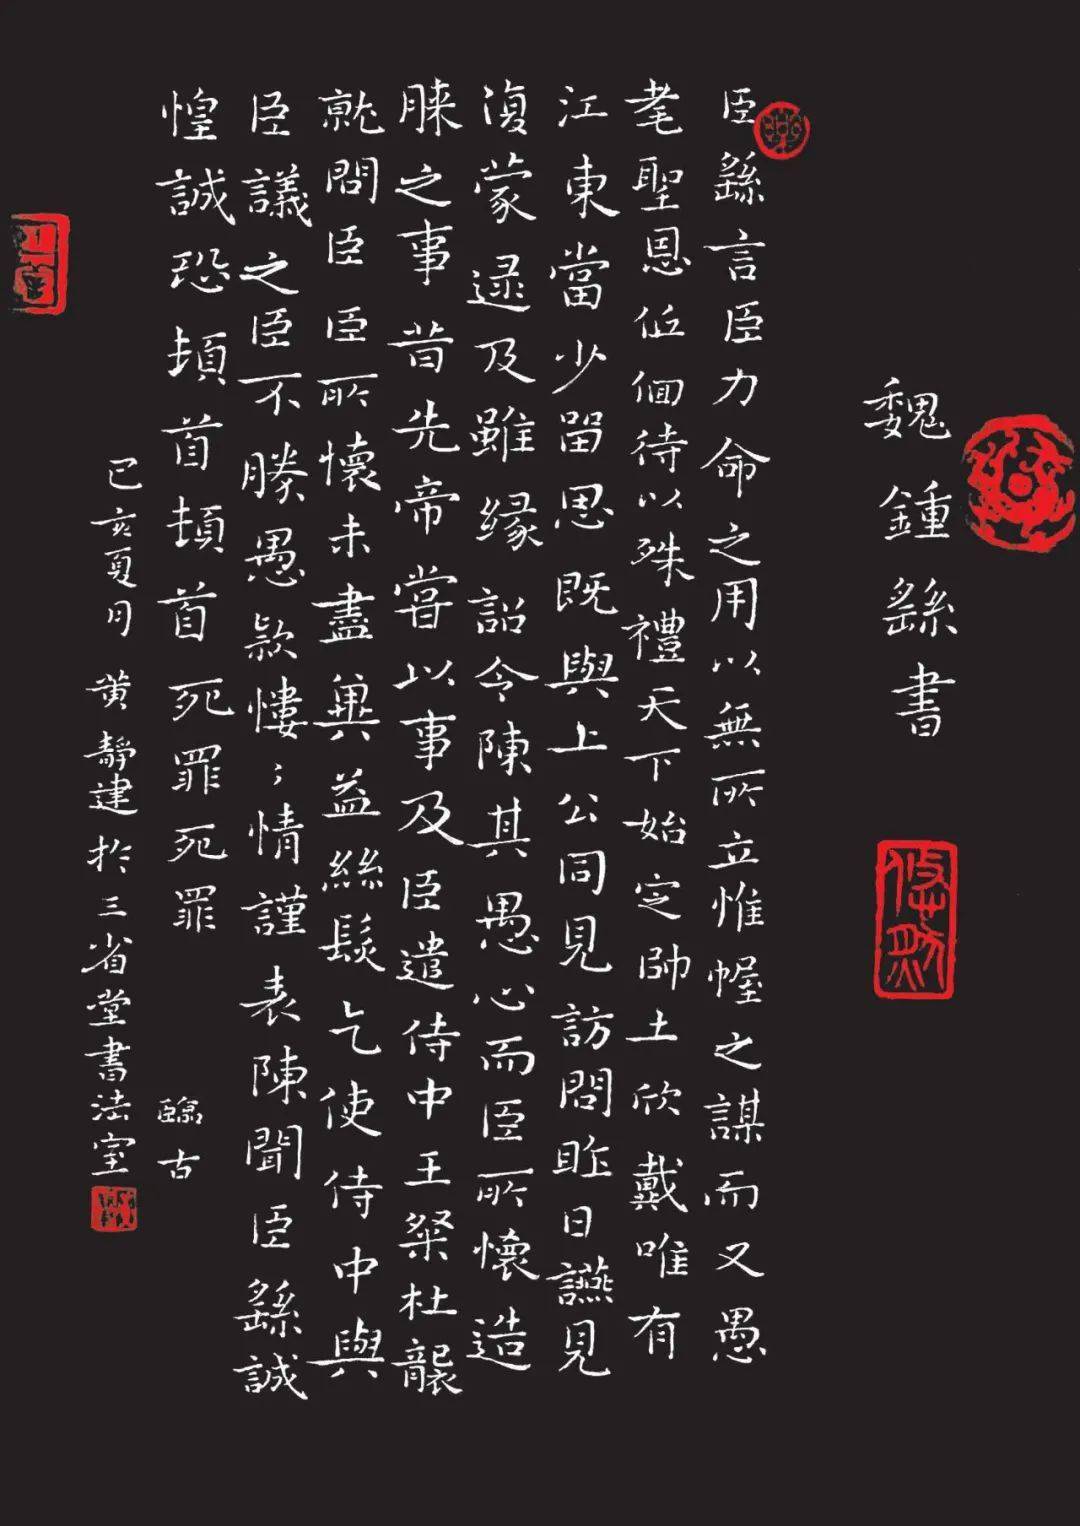 魏鍾繇書
臣繇言臣力命之用以無所立惟幄之謀而又愚
耄聖恩低徊待以殊禮天下始定帥土欣戴唯有
江東當少留思既與上公同見訪問昨日讌見
復蒙逮及雖緣詔令陳其愚心而臣所懷造
膝之事昔先帝嘗以事及臣遣侍中王粲杜襲
就問臣臣所懷未盡奧益絲髮乞使侍中與
臣議之臣不勝愚款慺〻情謹表陳聞臣繇誠
惶誠恐頓首頓首死罪死罪
臨古
己亥夏月黃靜建於三省堂書法室